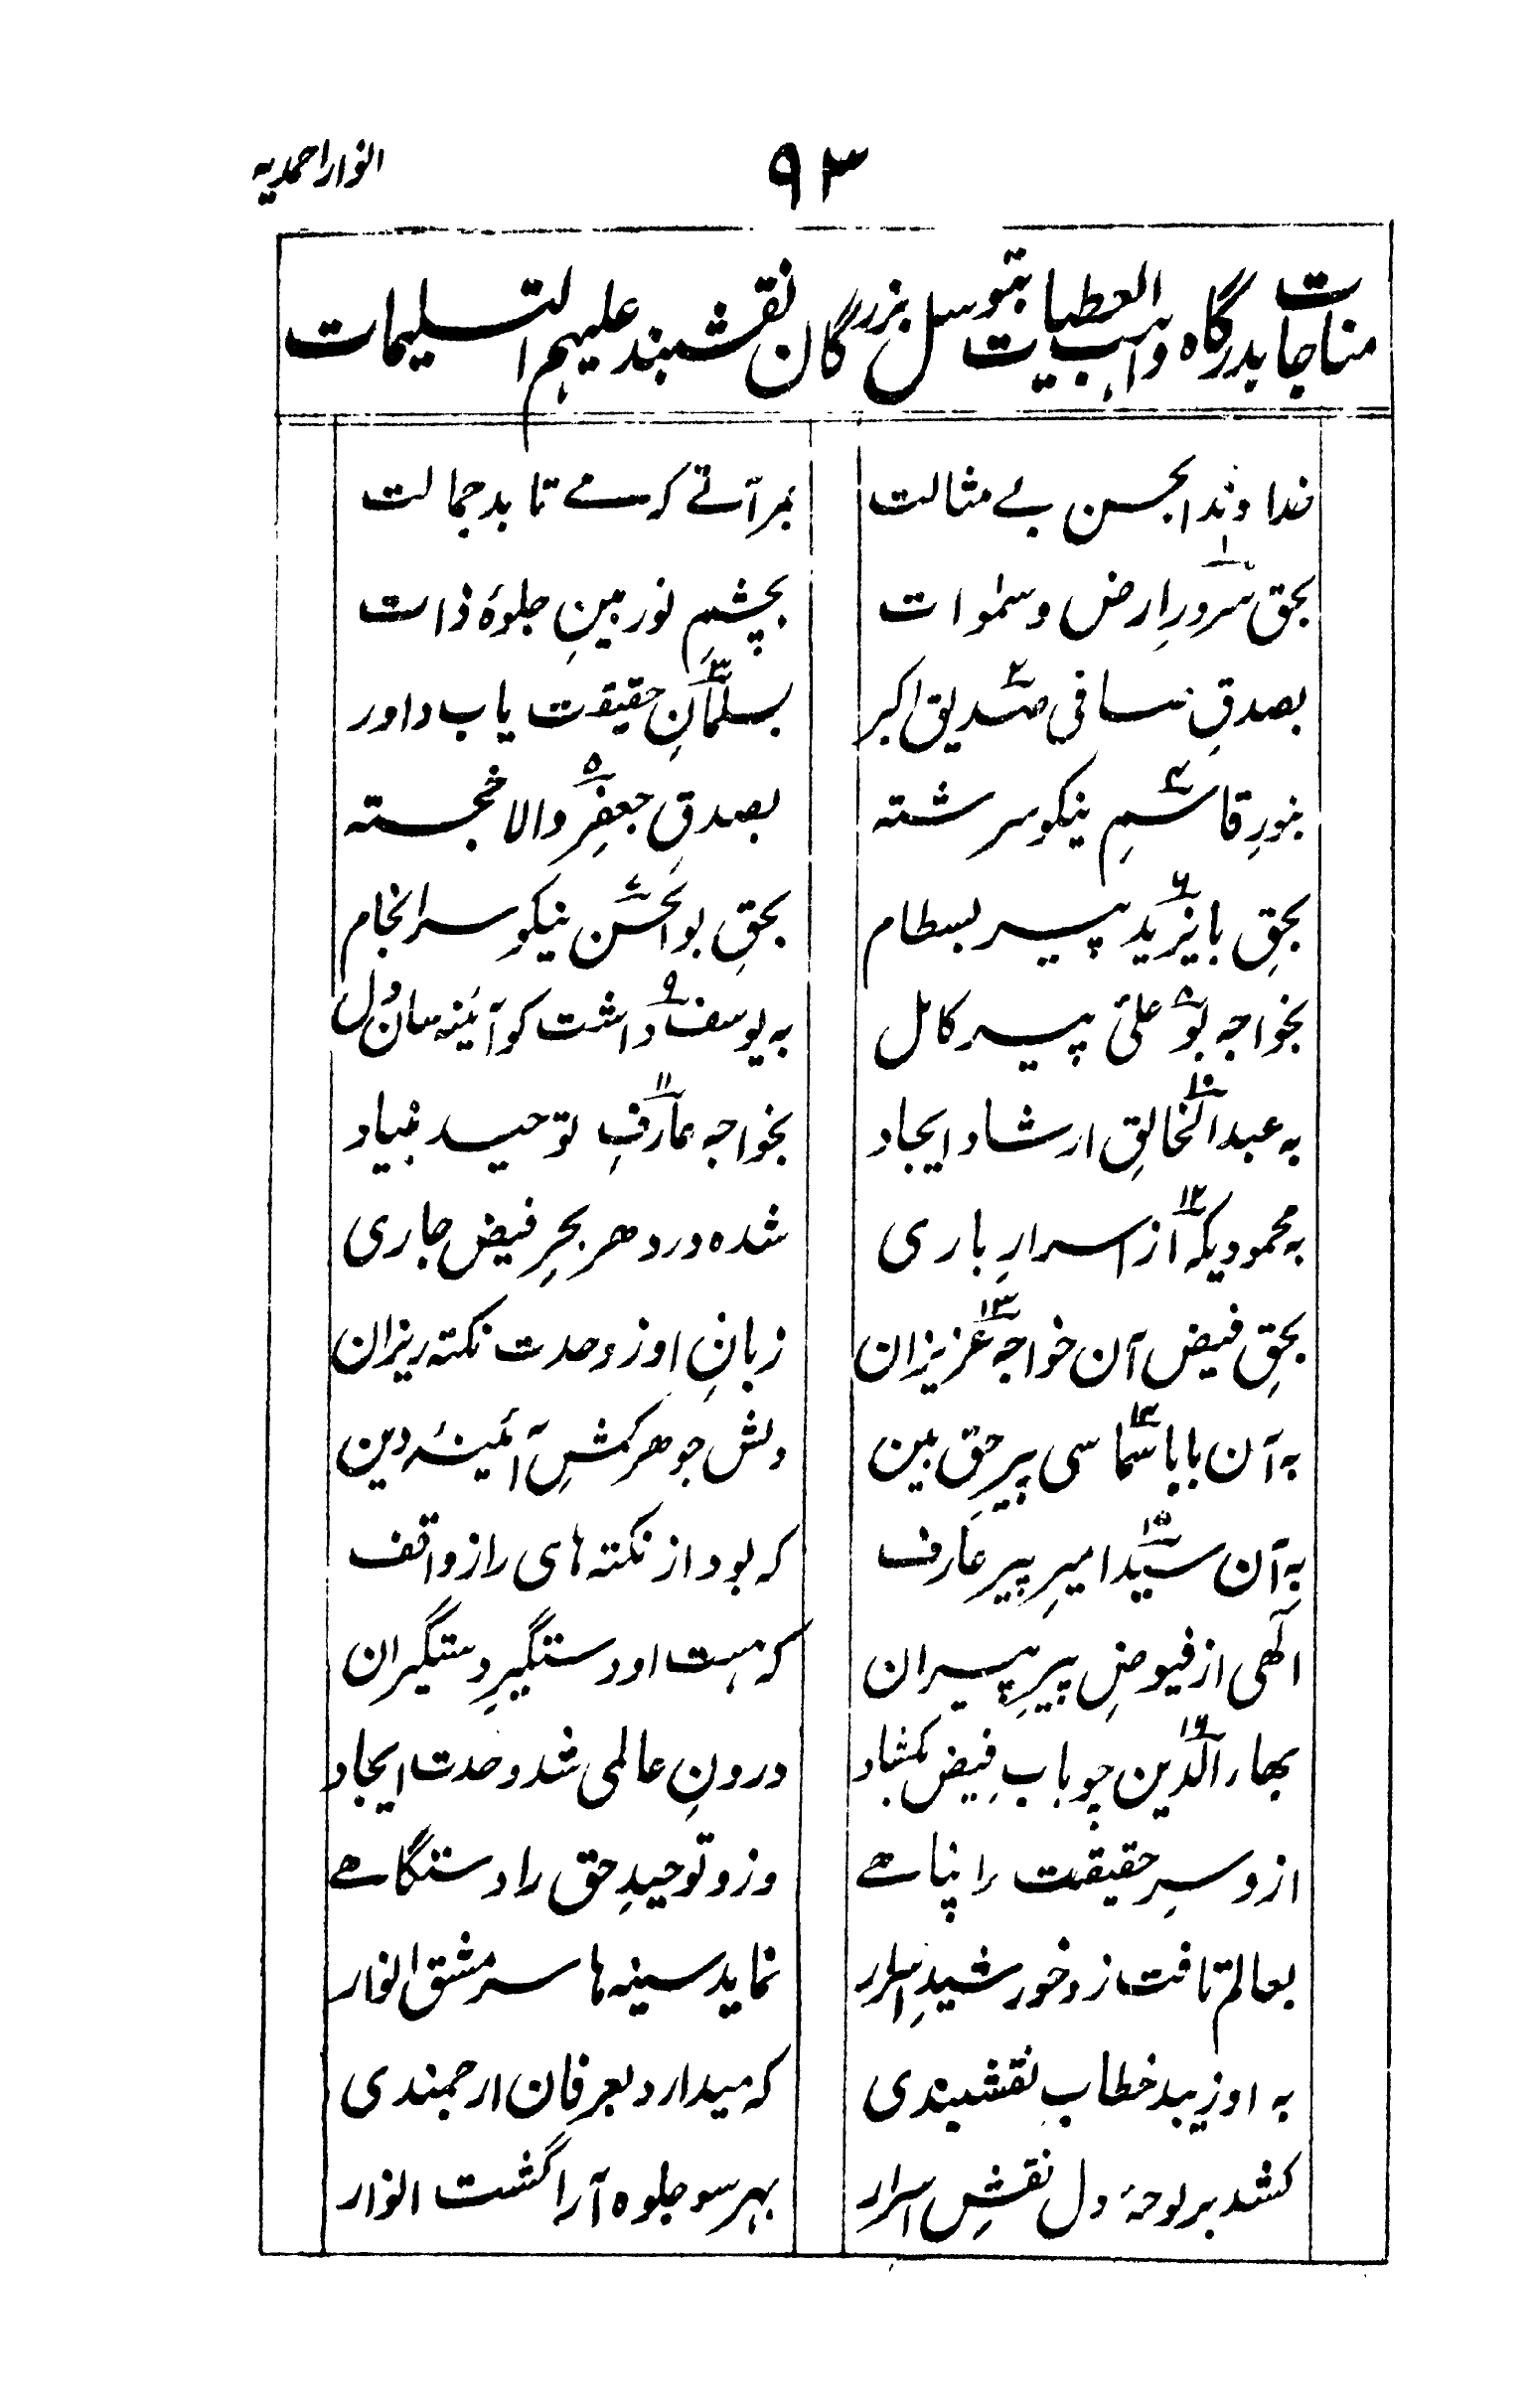 ۹۳ انوار احمدیہ
مناجات بدرگاہ واہب العطیات بتوسل بزرگان نقشبند علیہم التسلیمات
خداوندا بحسن بے مثالت بمرآتے کہ مے تابد جمالت
بحق سرورِ ارض و سمٰوات ۱ بچشمِ نور بینِ جلوۂ ذات
بصدقِ صافی صدیق اکبر ۲ بسلمانِ حقیقت یاب داور ۳
بنورِ قاسمِ نیکو سرشتہ ۴ بصدقِ جعفرِ والا خجستہ ۵
بحقِ بایزید پیر بسطام ۶ بحقِ بوالحسن نیکو سرانجام ۷
بخواجہ بو علی پیر کامل ۸ بہ یوسف داشت کو آئینہ سان دل ۹
بہ عبدالخالقِ ارشاد ایجاد ۱۰ بخواجہ عارفِ توحید بنیاد ۱۱
بہ محمودیکہ از اسرارِ باری ۱۲ شدہ در دھر بحرِ فیض جاری
بحقِ فیض آن خواجہ عزیزان ۱۳ زبانِ او ز وحدت نکتہ ریزان
بہ آن بابا سماسی پیرِ حق بین ۱۴ دلش جوھر کشِ آئینۂ دین
بہ آن سید امیرِ پیر عارف ۱۵ کہ بود از نکتہ ہای راز واقف
الٰھی از فیوضِ پیرِ پیران کہ ہست او دستگیرِ دستگیران
بھاء الدین چو بابِ فیض بکشاد ۱۶ درونِ عالمی شد وحدت ایجاد
ازو سرِ حقیقت را پناھے وزو توحیدِ حق را دستگاھے
بعالم تافت زو خورشیدِ اسرار نماید سینہ ہا سر مشق انوار
بہ او زیبد خطابِ نقشبندی کہ میدارد بعرفان ارجمندی
کشد بر لوحۂ دل نقشِ اسرار بہر سو جلوہ آرا گشت انوار